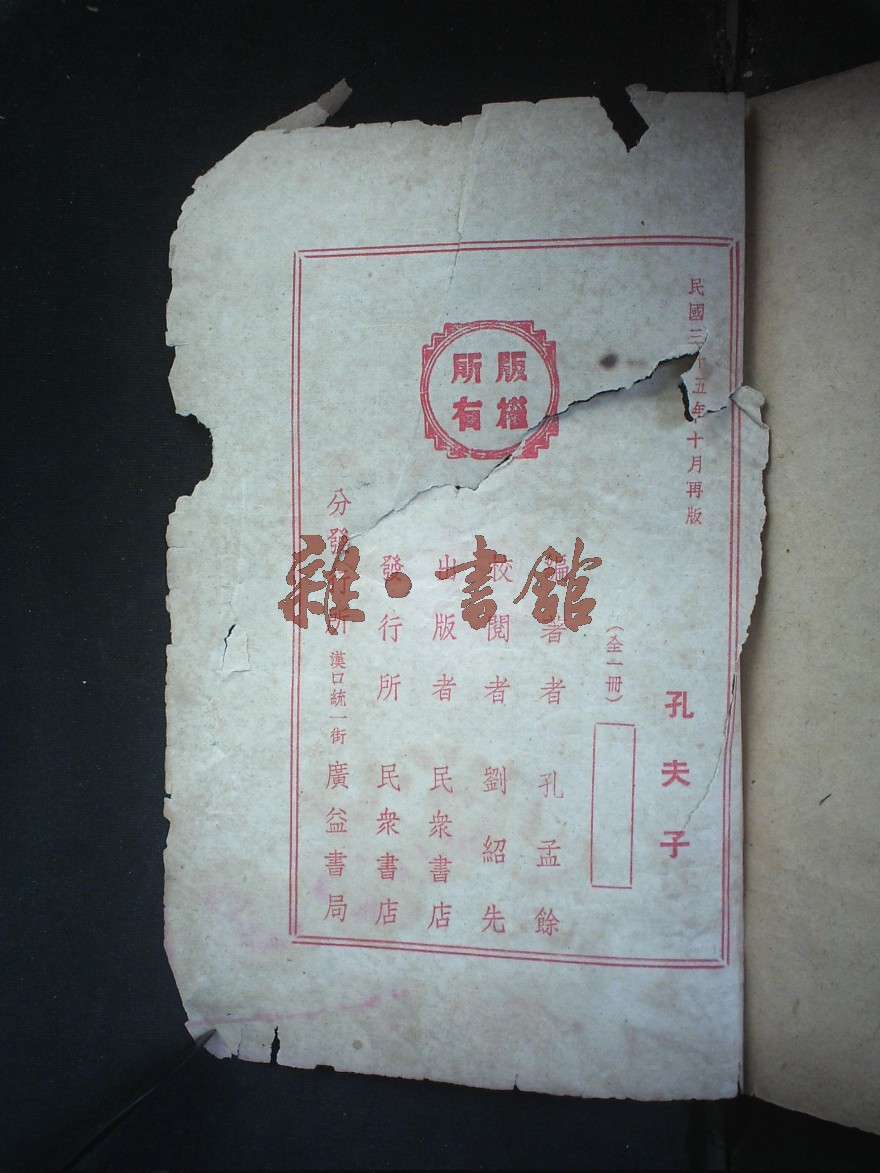 民國三十五年十月再版
孔夫子
（全一冊）
編著者 孔孟餘
校閱者 劉紹先
出版者 民衆書店
發行所 民衆書店
分發行所 漢口統一街 廣益書局
版權所有
雜·書館